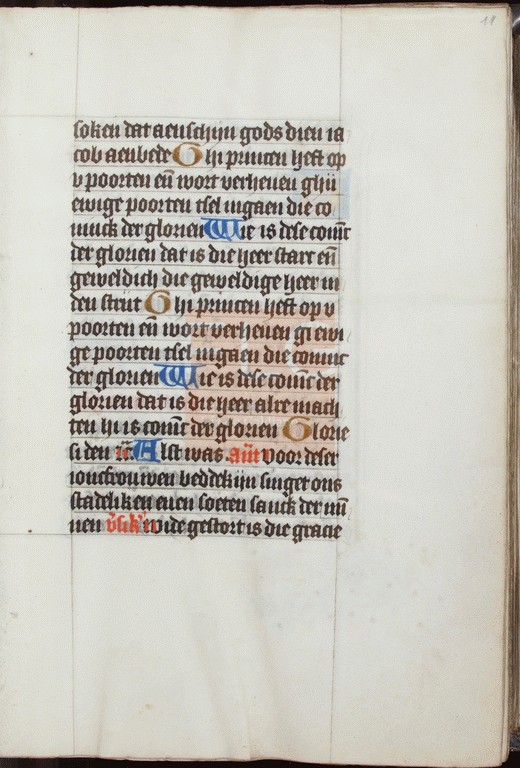 18
soken dat aenschijn gods dien ia
cob aenbede Ghi princen heft op
v poorten eñ wort verheuen ghii
ewige poorten tsel ingaen die co
ninck der glorien Wie is dese coninc
der glorien dat is die heer starc eñ
geweldich die geweldige heer in
den strijt Ghi princen heft op v
poorten eñ wort verheuen gi ewi
ge poorten tsel ingaen die coninc
der glorien Wie is dese coninc der
glorien dat is die heer alre mach
ten hi is coninc der glorien Glorie
si den Alst was añt voor deser
ioncfrouwen beddekijn singet ons
stadeliken enen soeten sanck der min
nen wide gestort is die gracie